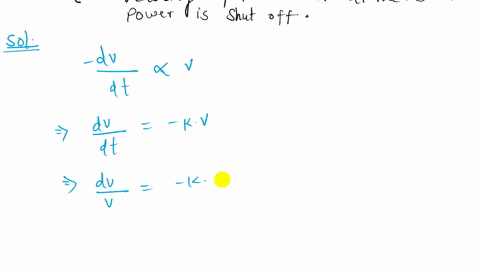 Power is shut off.
Sol.
-dv/dt ∝ v
⇒ dv/dt = -K.V
⇒ dv/v = -K.